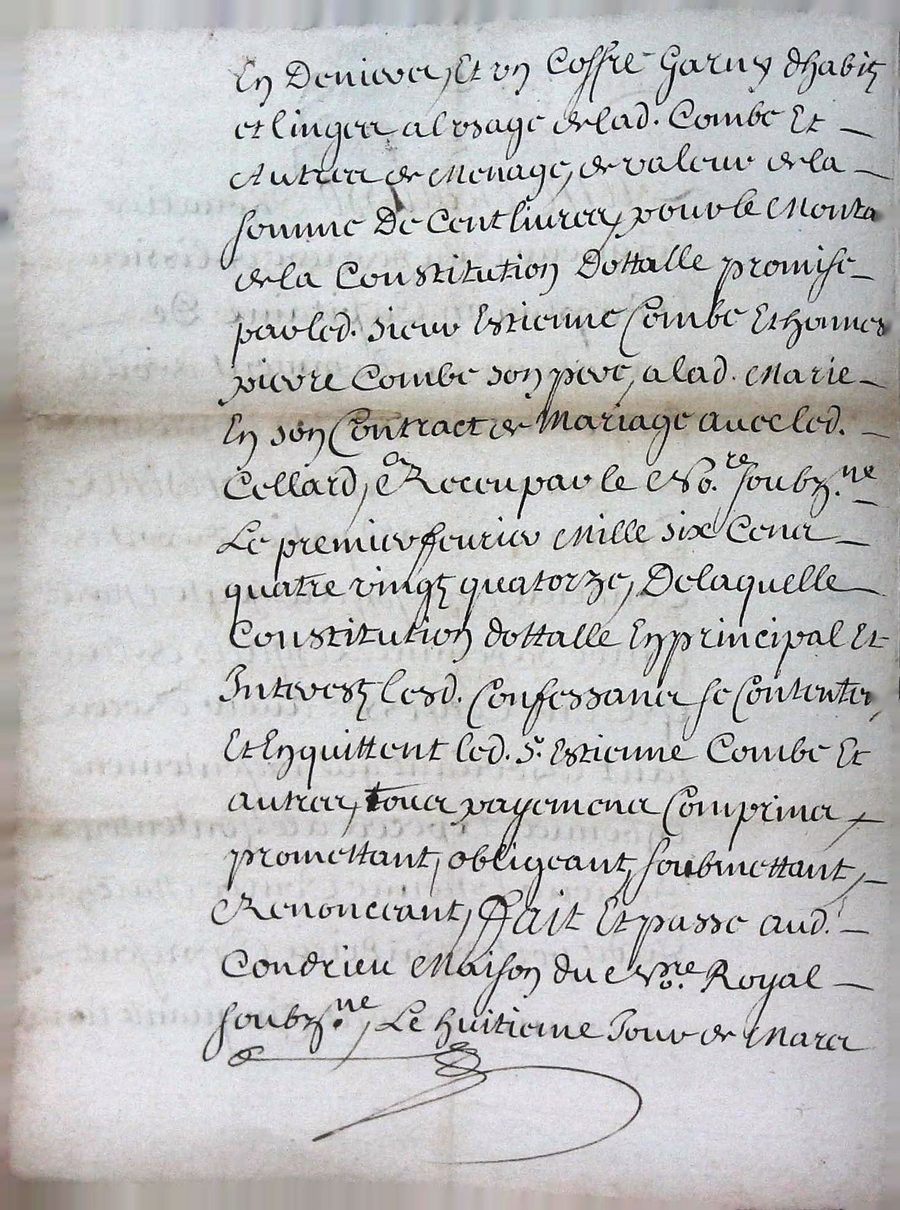 En Deniers, Et un Coffre Garny dhabitz
et linges a lusage de lad. Combe Et
Autres de Menage, de valeur de la
somme De Cent livres, pour le Monta
de la Constitution Dottalle promise
par led. sieur Estienne Combe Et honnes
pierre Combe son pere, a lad. Marie
En son Contract de Mariage avec led.
Cellard, Receu par le No.re soubz.ne
Le premier feurier Mille six Cens
quatre vingtz quatorze, De laquelle
Constitution dottalle En principal Et
Interestz lesd. Confessans se Contenten
Et En quittent led. Sr. Estienne Combe Et
autres, tous payemens Comprins,
promettant, obligeant, soubmettant,
Renonceant, ffait Et passe aud.
Condrieu Maison du No.re Royal
soubz.ne, Le huitieme Jour de Mars